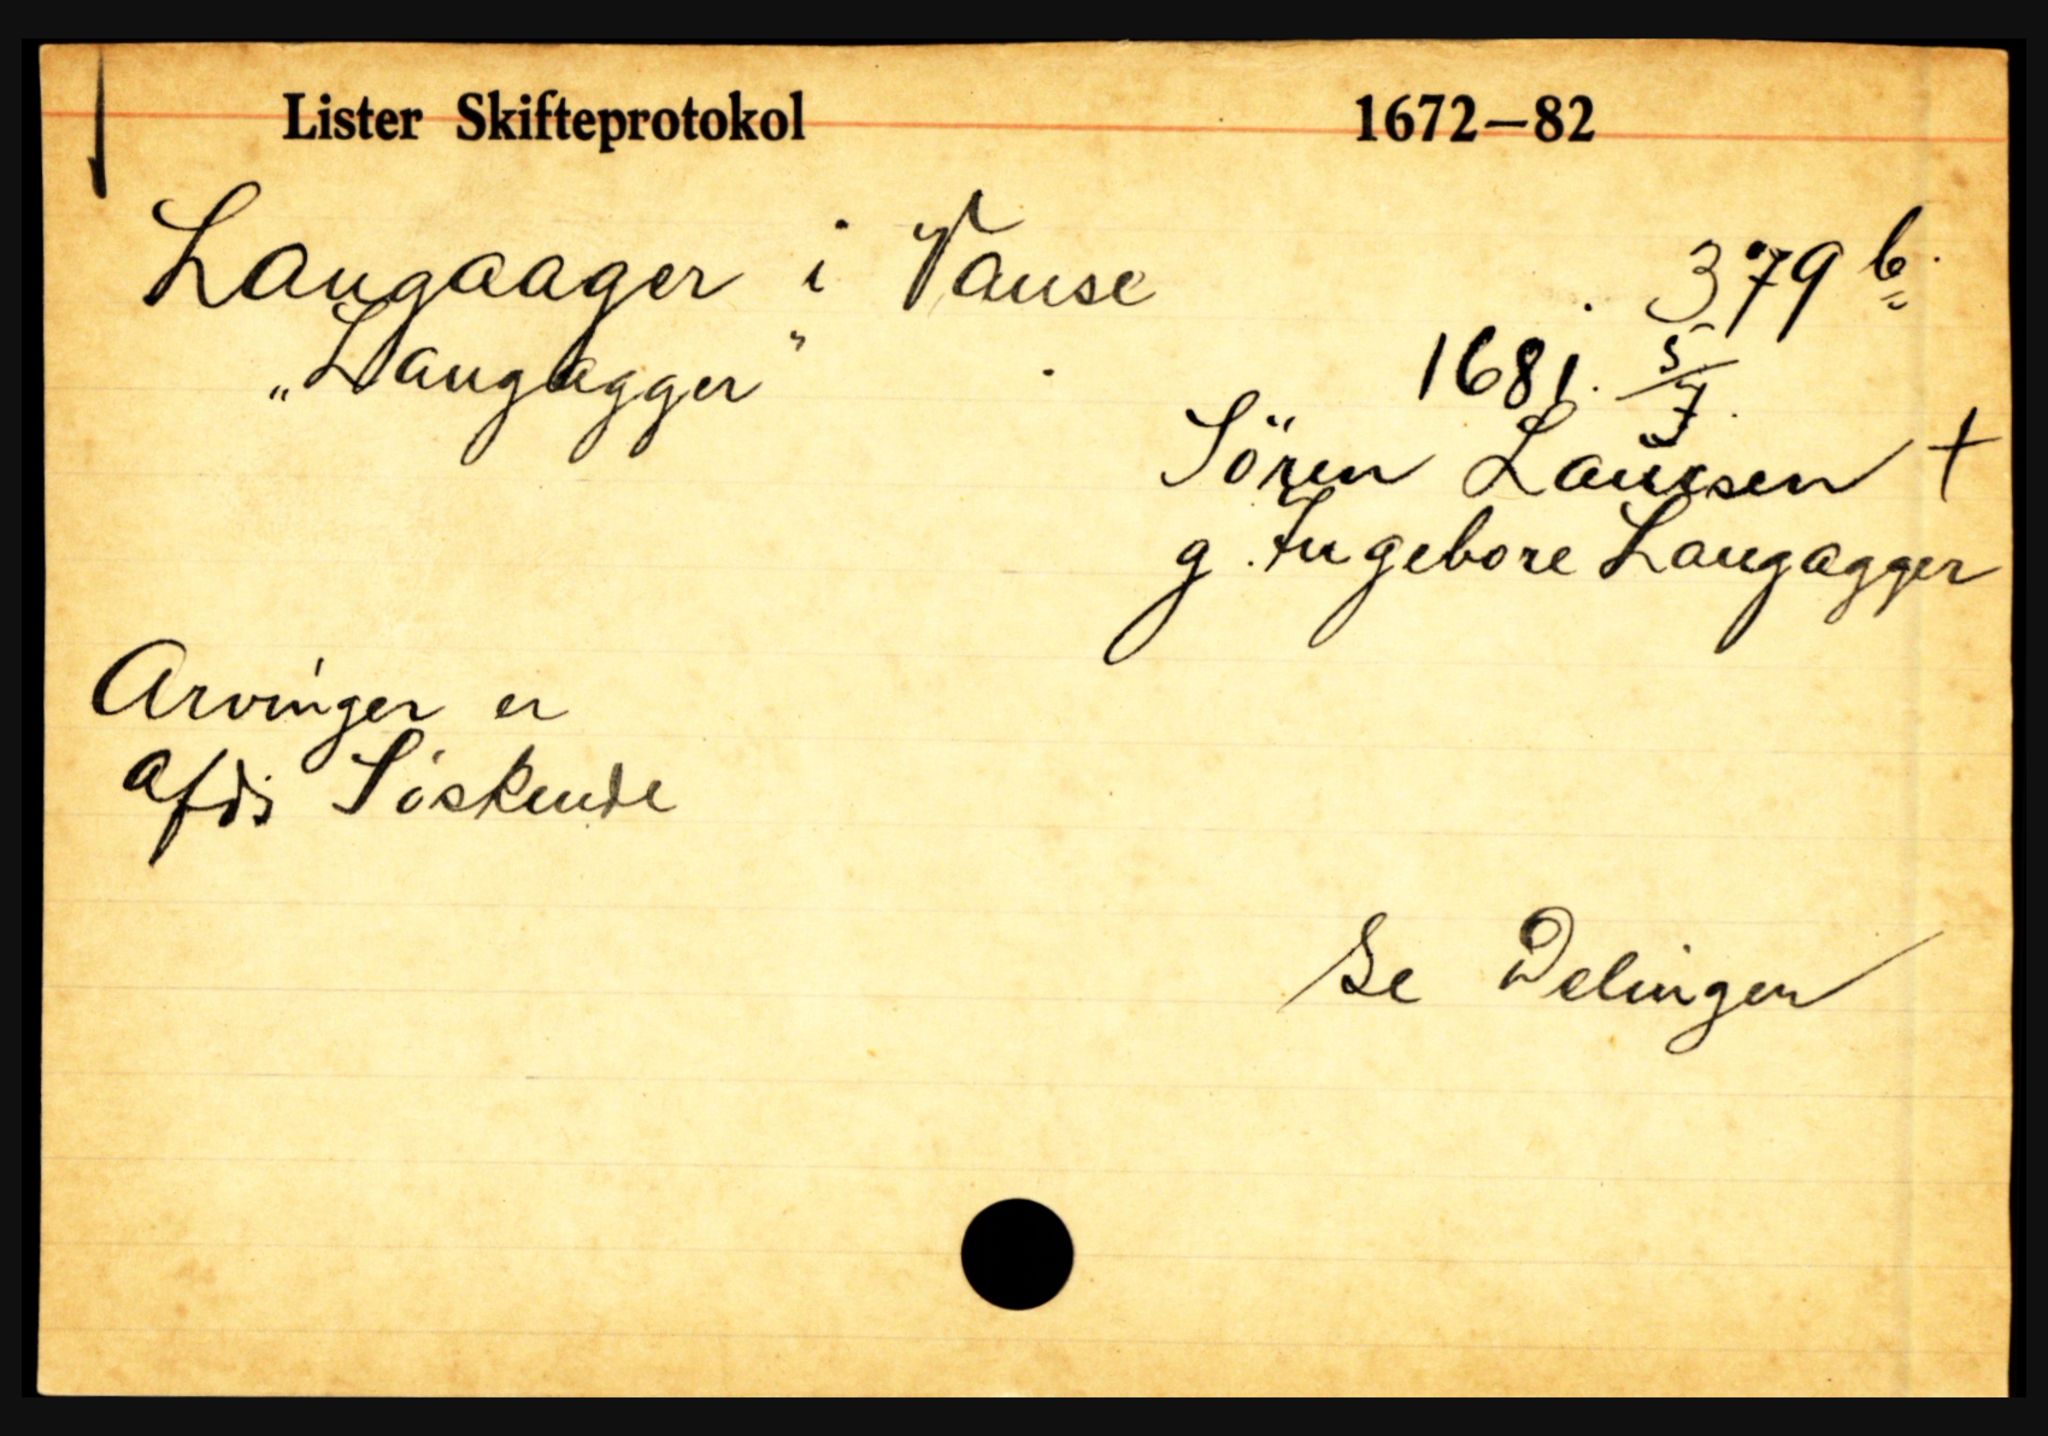 Lister Skifteprotokol 1672–82
Langaager i Vanse 379 b.
„Langagger" 1681. 5/7.
Sören Laursen +
g. Ingebore Langagger
Arvinger er
afds Söskende
Se Delingen